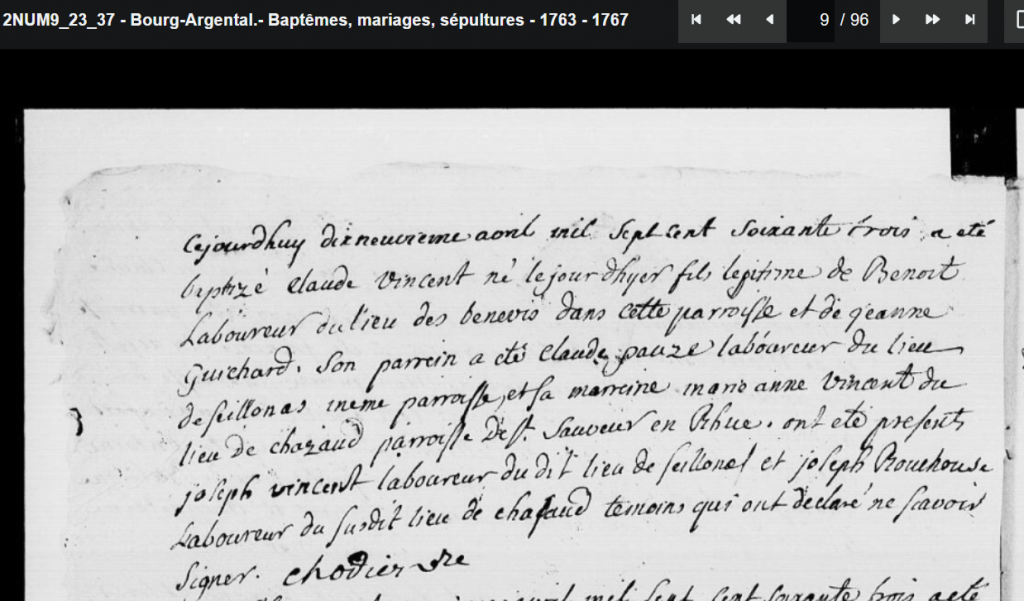 2NUM9_23_37 - Bourg-Argental.- Baptêmes, mariages, sépultures - 1763 - 1767
9 / 96
Cejourdhuy dixneuvieme avril mil sept cent soixante trois a eté
baptizé Claude vincent né lejour dhyer fils legitime de Benoit
Laboureur du lieu des benevis dans cette parroisse et de jeanne
Guichard. Son parrein a eté Claude pauze laboureur du lieu
de seillonas meme parroisse, et sa marreine marie anne vincent du
lieu de chazaud parroisse de st. Sauveur en Rhue. ont eté presents
joseph vincent laboureur du dit lieu de seillonas et joseph Rouchouse
Laboureur du susdit lieu de chazaud temoins qui ont declaré ne savoir
signer. Chodier vre
avril mil sept cent soixante trois a eté